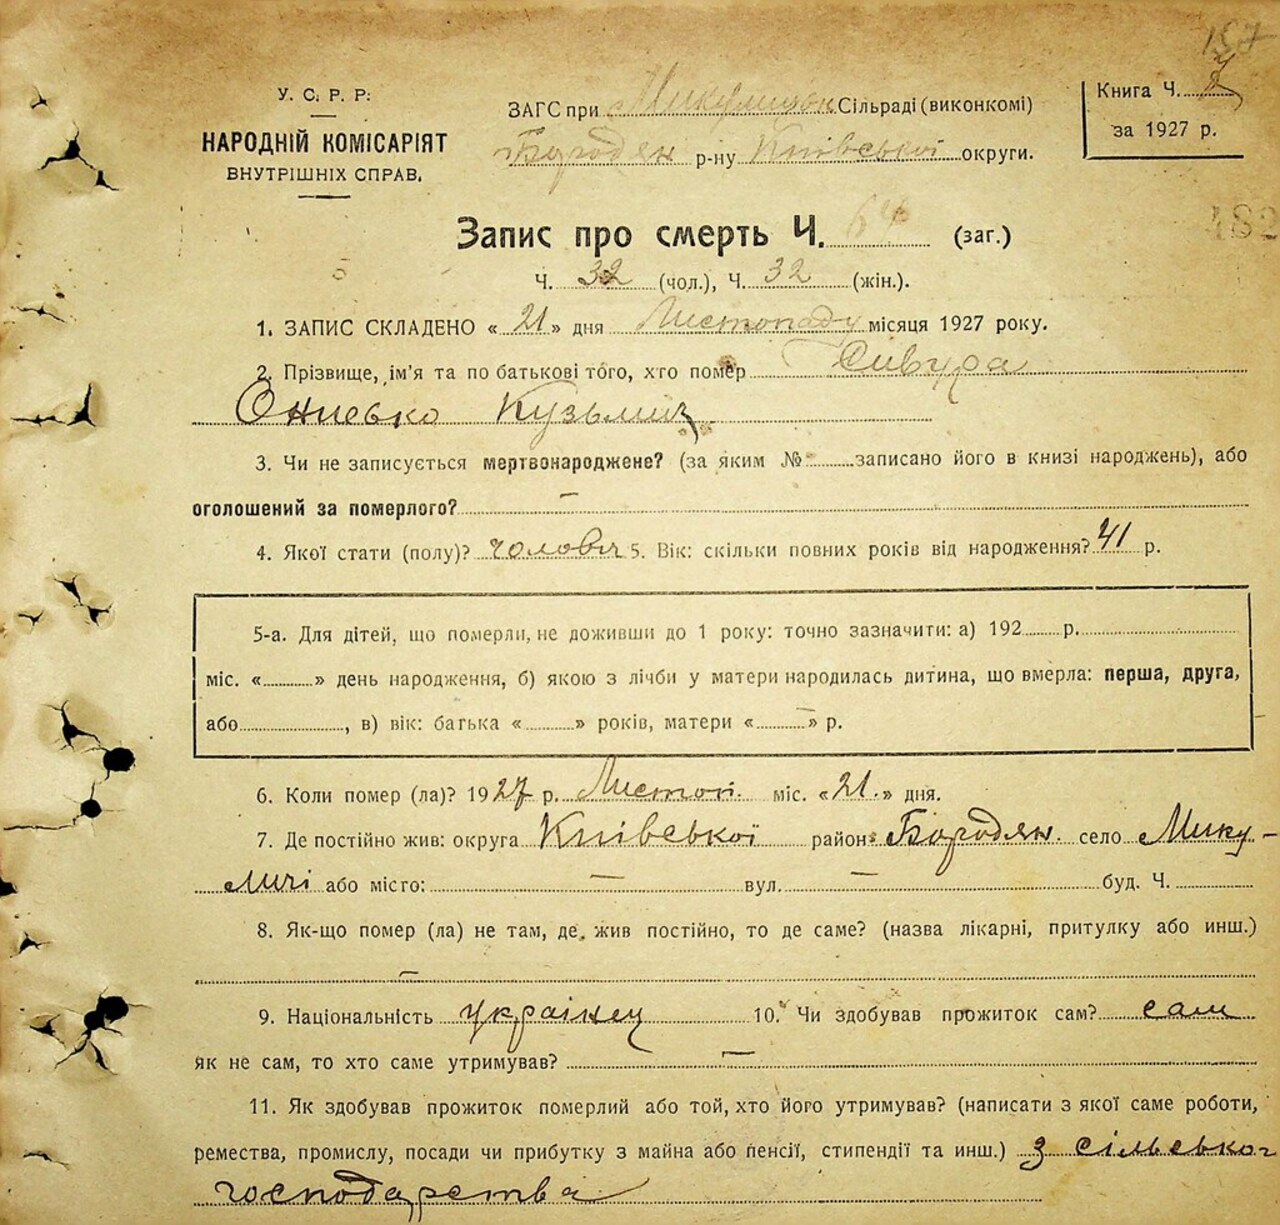 157
У. С. Р. Р.
НАРОДНІЙ КОМІСАРІЯТ
ВНУТРІШНІХ СПРАВ.
ЗАГС при Микулицьк Сільраді (виконкомі)
Бородян р-ну Київської округи.
Книга Ч. 7
за 1927 р.
482
Запис про смерть Ч. 64 (заг.)
Ч. 32 (чол.), Ч. 32 (жін.).
1. ЗАПИС СКЛАДЕНО « 21 » дня Листопаду місяця 1927 року.
2. Прізвище, ім'я та по батькові того, хто помер Сивура
Онисько Кузьмич
3. Чи не записується мертвонароджене? (за яким № записано його в книзі народжень), або
оголошений за померлого? —
4. Якої стати (полу)? чоловіч 5. Вік: скільки повних років від народження? 41 р.
5-а. Для дітей, що померли, не доживши до 1 року: точно зазначити: а) 192 р.
міс. « » день народження, б) якою з лічби у матери народилась дитина, що вмерла: перша, друга,
або , в) вік: батька « » років, матери « — » р.
6. Коли помер (ла)? 1927 р. Листоп. міс. «21.» дня.
7. Де постійно жив: округа Київської район Бородян. село Мику-
личі або місто: — вул. — буд. Ч.
8. Як-що помер (ла) не там, де жив постійно, то де саме? (назва лікарні, притулку або инш.)
—
9. Національність українец 10. Чи здобував прожиток сам? сам
як не сам, то хто саме утримував? —
11. Як здобував прожиток померлий або той, хто його утримував? (написати з якої саме роботи,
ремества, промислу, посади чи прибутку з майна або пенсії, стипендії та инш.) з сільського
господарства